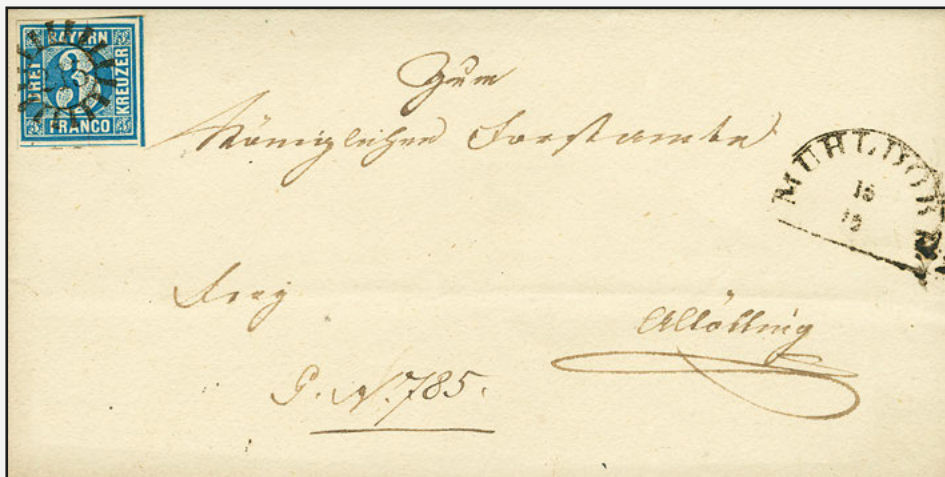 BAYERN
DREI
3
KREUZER
FRANCO
Zum
Königlichen Forstamte
MÜHLDORF
Altötting
P. N. 785.